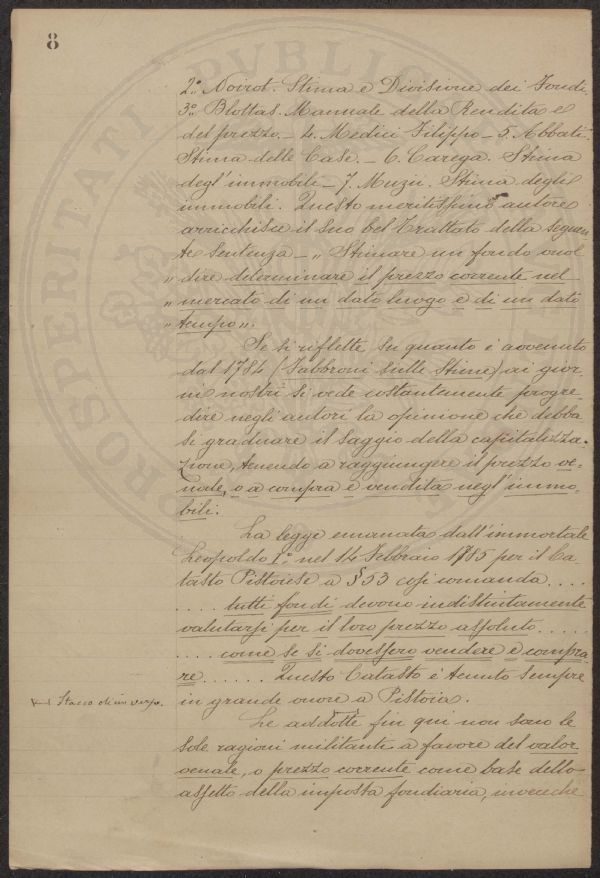 8
2.° Noirot. Stima e Divisione dei Fondi
3.° Blottas. Manuale della Rendita e
del prezzo. _ 4. Medici Filippo _ 5. Abbati.
Stima delle Case. _ 6. Carega. Stima
degl'immobili _ 7. Muzii. Stima degli
immobili. Questo meritissimo autore
arricchisce il suo bel Trattato della seguen
te Sentenza _ „ Stimare un fondo vuol
„ dire determinare il prezzo corrente nel
„ mercato di un dato luogo e di un dato
„ tempo „.
Se si riflette su quanto è avvenuto
dal 1784 (Fabbroni sulle Stime) ai gior,
ni nostri si vede costantemente progre-
dire negli autori la opinione che debba
si graduare il saggio della capitalizza=
zione, tenendo a raggiungere il prezzo ve=
nale, o a compra e vendita negl'immo=
bili.
La legge emanata dall'immortale
Leopoldo I.° nel 14 Febbraio 1785 per il Ca
tasto Pistoiese a § 53 così comanda ....
.... tutti fondi devono indistintamente
valutarsi per il loro prezzo assoluto .....
.... come se si dovessero vendere e compra
re ...... Questo Catasto è tenuto sempre
Stacco di un verso.
in grande onore a Pistoia.
Le addotte fin qui non sono le
sole ragioni militanti a favore del valor
venale, o prezzo corrente come base dello
assetto della imposta fondiaria, invecchè
PROSPERITATI PVBLICAE